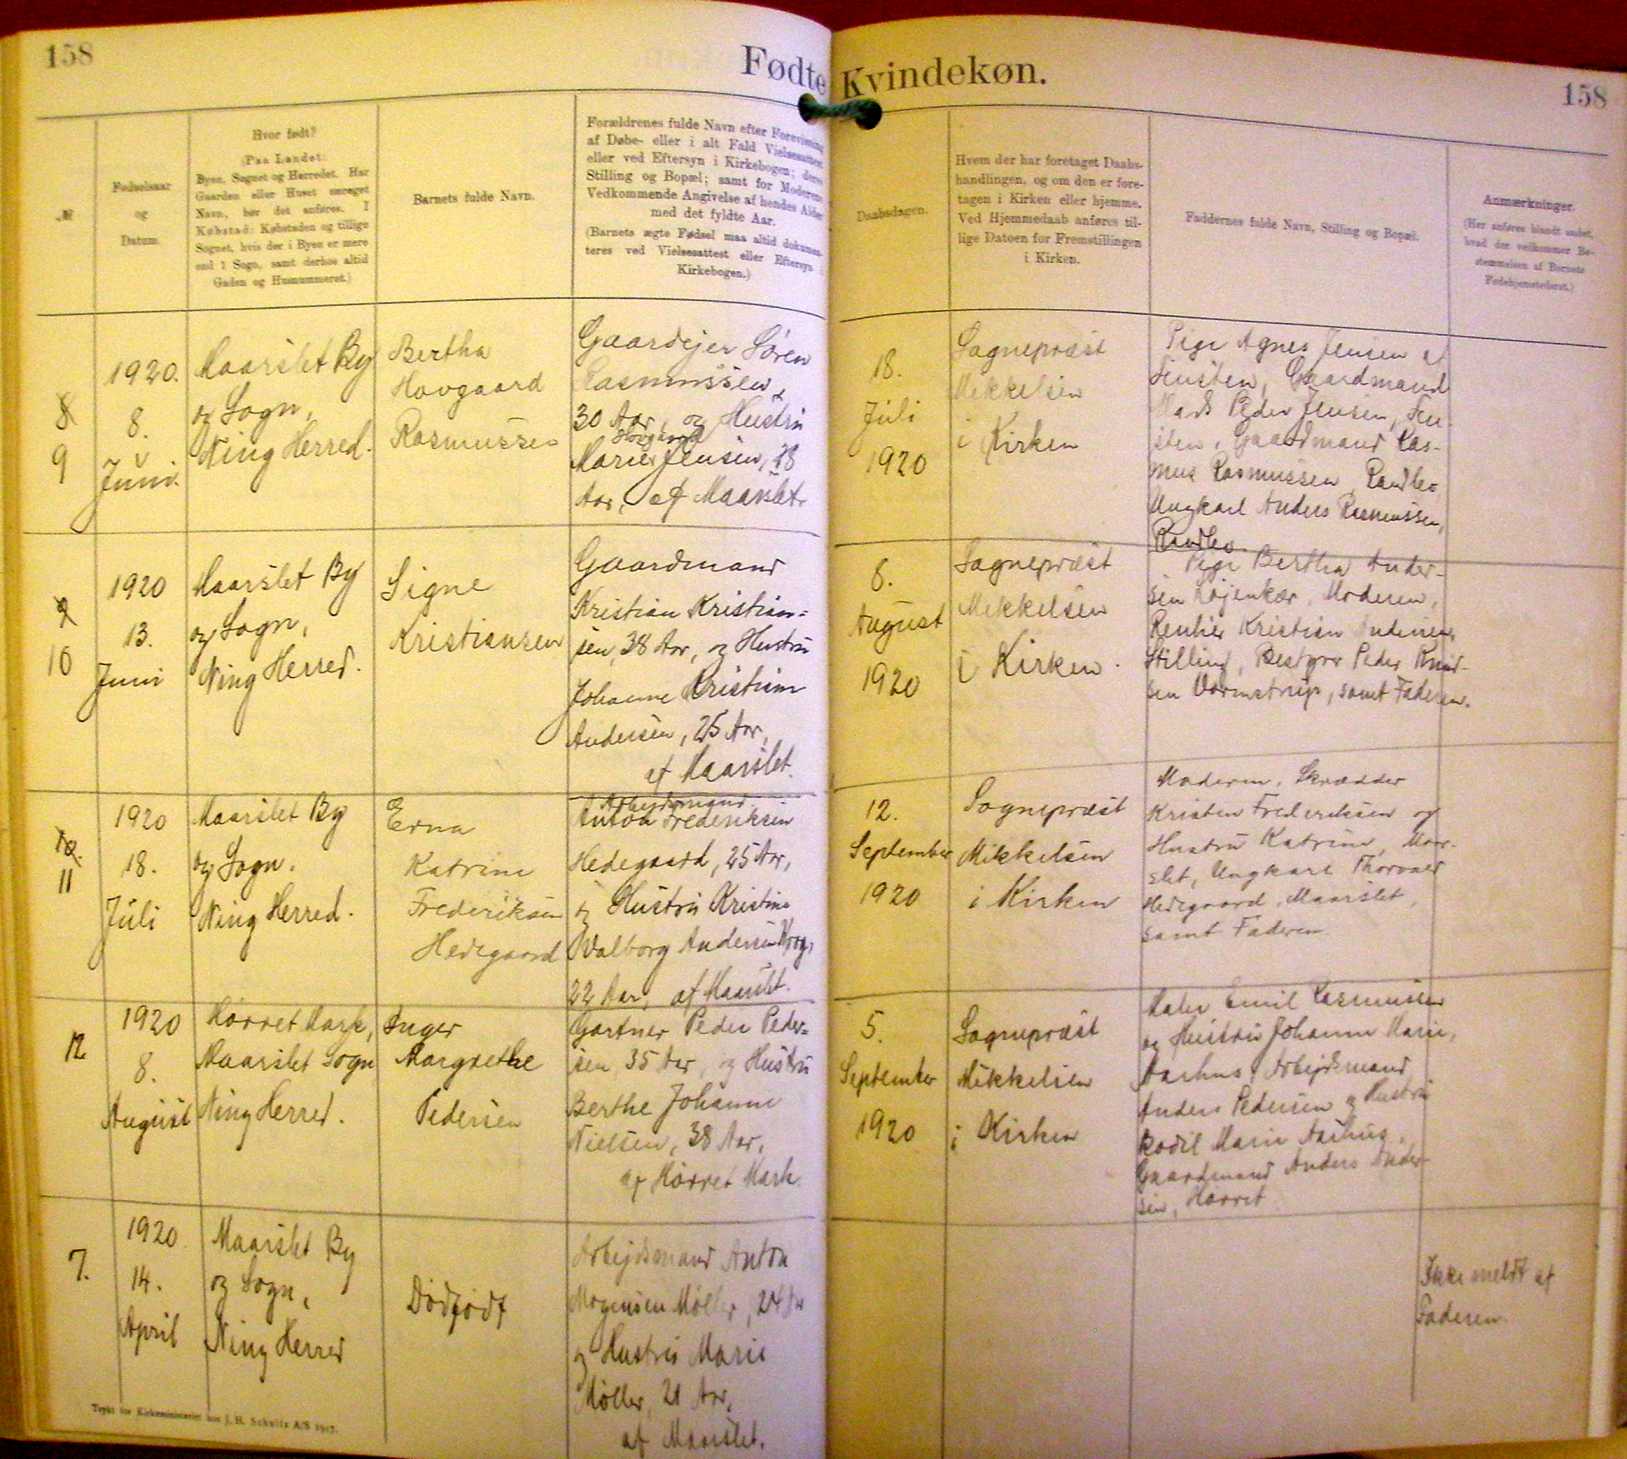 158
Fødte Kvindekøn.
158
№
Fødselsaar
og
Datum.
Hvor født?
(Paa Landet:
Byen, Sognet og Herredet. Har
Gaarden eller Huset særeget
Navn, bør det anføres. I
Købstad: Købstaden og tillige
Sognet, hvis der i Byen er mere
end 1 Sogn, samt derhos altid
Gaden og Husnummeret.)
Barnets fulde Navn.
Forældrenes fulde Navn efter Forevisning
af Døbe- eller i alt Fald Vielsesattest
eller ved Eftersyn i Kirkebogen; deres
Stilling og Bopæl; samt for Moderens
Vedkommende Angivelse af hendes Alder
med det fyldte Aar.
(Barnets ægte Fødsel maa altid dokumen-
teres ved Vielsesattest eller Eftersyn i
Kirkebogen.)
Daabsdagen.
Hvem der har foretaget Daabs-
handlingen, og om den er fore-
tagen i Kirken eller hjemme.
Ved Hjemmedaab anføres til-
lige Datoen for Fremstillingen
i Kirken.
Faddernes fulde Navn, Stilling og Bopæl.
Anmærkninger.
(Her anføres blandt andet,
hvad der vedkommer Be-
stemmelsen af Barnets
Fødehjemsteheret.)
8
9
1920.
8.
Juni.
Maarslet By
og Sogn,
Ning Herred.
Bertha
Hovgaard
Rasmussen
Gaardejer Søren
Rasmussen,
30 Aar, og Hustru
Hovgaard
Marie Jensen, 28
Aar, af Maarslet.
18.
Juli
1920
Sognepræst
Mikkelsen
i Kirken
Pige Agnes Jensen af
Tiusten, Gaardmand
Mads Peder Jensen, Tiu-
sten, Gaardmand Ras-
mus Rasmussen Randlev
Ungkarl Anders Rasmussen,
Randlev
9
10
1920
13.
Juni
Maarslet By
og Sogn,
Ning Herred.
Signe
Kristiansen
Gaardmand
Kristian Kristian-
sen, 38 Aar, og Hustru
Johanne Kristine
Andersen, 25 Aar,
af Maarslet.
8.
August
1920
Sognepræst
Mikkelsen
i Kirken.
Pige Bertha Ander-
sen Løjenkær, Moderen,
Rentier Kristian Andersen
Stilling, Bestyrer Peder Knud-
sen Vormstrup, samt Faderen.
10.
11
1920
18.
Juli
Maarslet By
og Sogn.
Ning Herred.
Erna
Katrine
Frederiksen
Hedegaard
Arbejdsmand
Anton Frederiksen
Hedegaard, 25 Aar,
og Hustru Kristine
Valborg Andersen Krog,
22 Aar, af Maarslet.
12.
September
1920
Sognepræst
Mikkelsen
i Kirken
Moderen, Skrædder
Kristen Frederiksen og
Hustru Katrine, Maar-
slet, Ungkarl Thorvald
Hedegaard, Maarslet,
samt Faderen
12
1920
8.
August
Hørret Mark,
Maarslet Sogn
Ning Herred.
Inger
Margrethe
Pedersen
Gartner Peder Peder-
sen, 35 Aar, og Hustru
Berthe Johanne
Nielsen, 38 Aar,
af Hørret Mark.
5.
September
1920
Sognepræst
Mikkelsen
i Kirken
Maler Emil Rasmussen
og Hustru Johanne Marie,
Aarhus, Arbejdsmand
Anders Pedersen og Hustru
Bodil Marie Aarhus,
Gaardmand Anders Ander-
sen, Hørret
7.
1920
14.
April
Maarslet By
og Sogn,
Ning Herred
Dødfødt
Arbejdsmand Anton
Mogensen Møller, 24 Aar
og Hustru Marie
Møller, 21 Aar,
af Maarslet.
Ikke meldt af
Faderen.
Trykt for Kirkeministeriet hos J. H. Schultz A/S 1917.